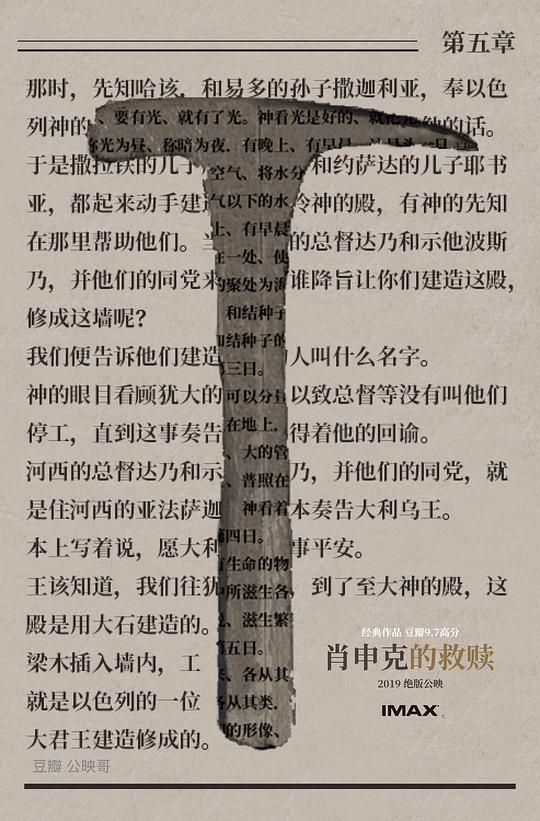 第五章
那时，先知哈该．和易多的孙子撒迦利亚，奉以色
列神的、要有光、就有了光。神看光是好的、就把光的话。
光为昼、称暗为夜．有晚上、有早
于是撒拉铁的儿子空气、将水分和约萨达的儿子耶书
亚，都起来动手建气以下的水神的殿，有神的先知
上、有早晨
在那里帮助他们。的总督达乃和示他波斯
在一处、使
乃，并他们的同党来的聚处为谁降旨让你们建造这殿，
修成这墙呢？和结种子
和结种子的
我们便告诉他们建造人叫什么名字。
三日。
神的眼目看顾犹大的可以分以致总督等没有叫他们
停工，直到这事奏告在地上．得着他的回谕。
、大的管
河西的总督达乃和示乃，并他们的同党，就
、普照在
是住河西的亚法萨迦神看着本奏告大利乌王。
四日。
本上写着说，愿大利事平安。
有生命的物
王该知道，我们往犹所滋生各，到了至大神的殿，这
殿是用大石建造的。、滋生繁
五日。
梁木插入墙内，工、各从其
就是以色列的一位各从其类．
大君王建造修成的。的形像、
经典作品 豆瓣9.7高分
肖申克的救赎
2019 绝版公映
IMAX
豆瓣 公映哥